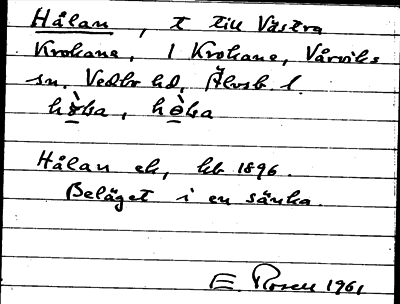 Hålan, t till Västra
Krokane, 1 Krokane, Vårviks
sn. Vedbo hd, Älvsb. l.
Hålan ek, kb 1896.
Beläget i en sänka.
E. Rosell 1961